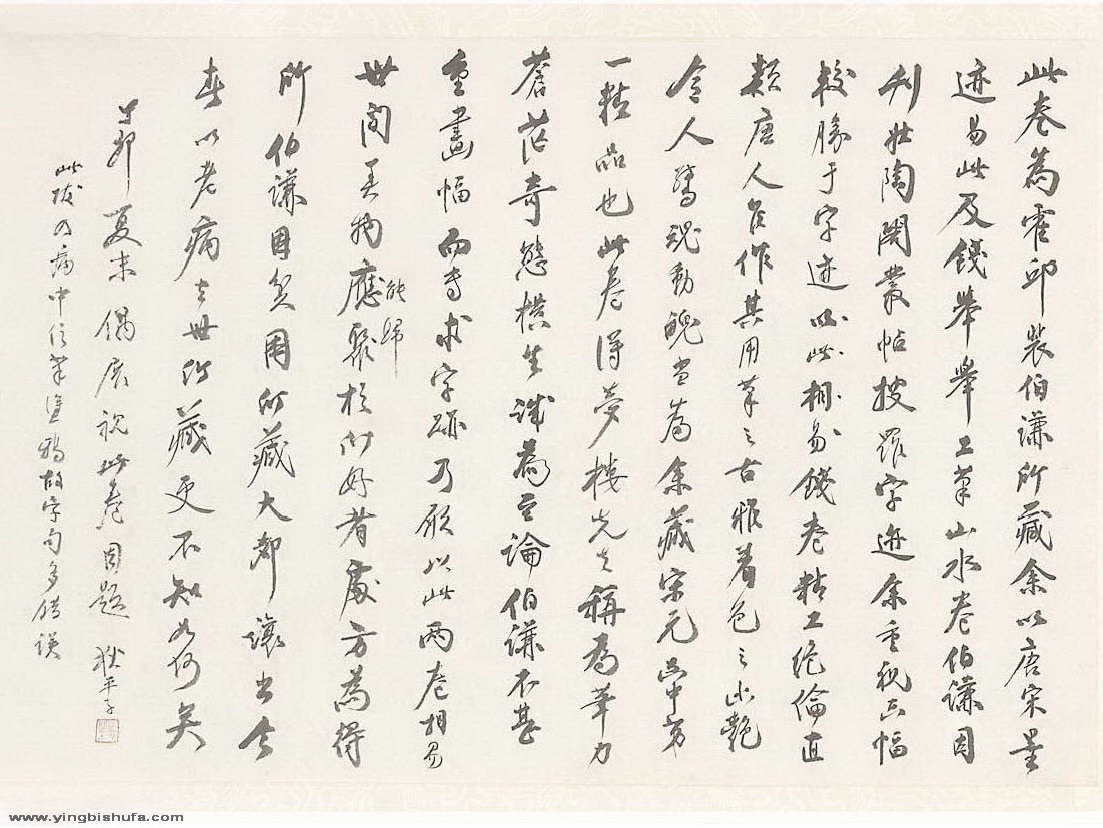 此卷為霍邱裴伯谦所藏余以唐宋墨
迹易此及錢舜舉工筆山水卷伯谦因
刊壯陶閣叢帖搜羅字迹余重視畫幅
較勝于字迹以此相易錢卷精工絶倫直
類唐人佳作其用筆之古雅着色之冰艷
令人驚魂動魄當為余藏宋元畫中第
一精品也此卷得夢樓先生稱為筆力
蒼茫奇態橫生誠為至論伯谦不甚
重畫幅而專求字跡乃願以此兩卷相易
世間美物應能歸聚於所好者處方為得
所伯谦因貧困所藏大都讓出今
春以老病去世所藏更不知如何矣
丁卯夏末偶展视此卷因題 狄平子
此跋如病中信筆塗鴉故字句多錯誤
www.yingbishufa.com